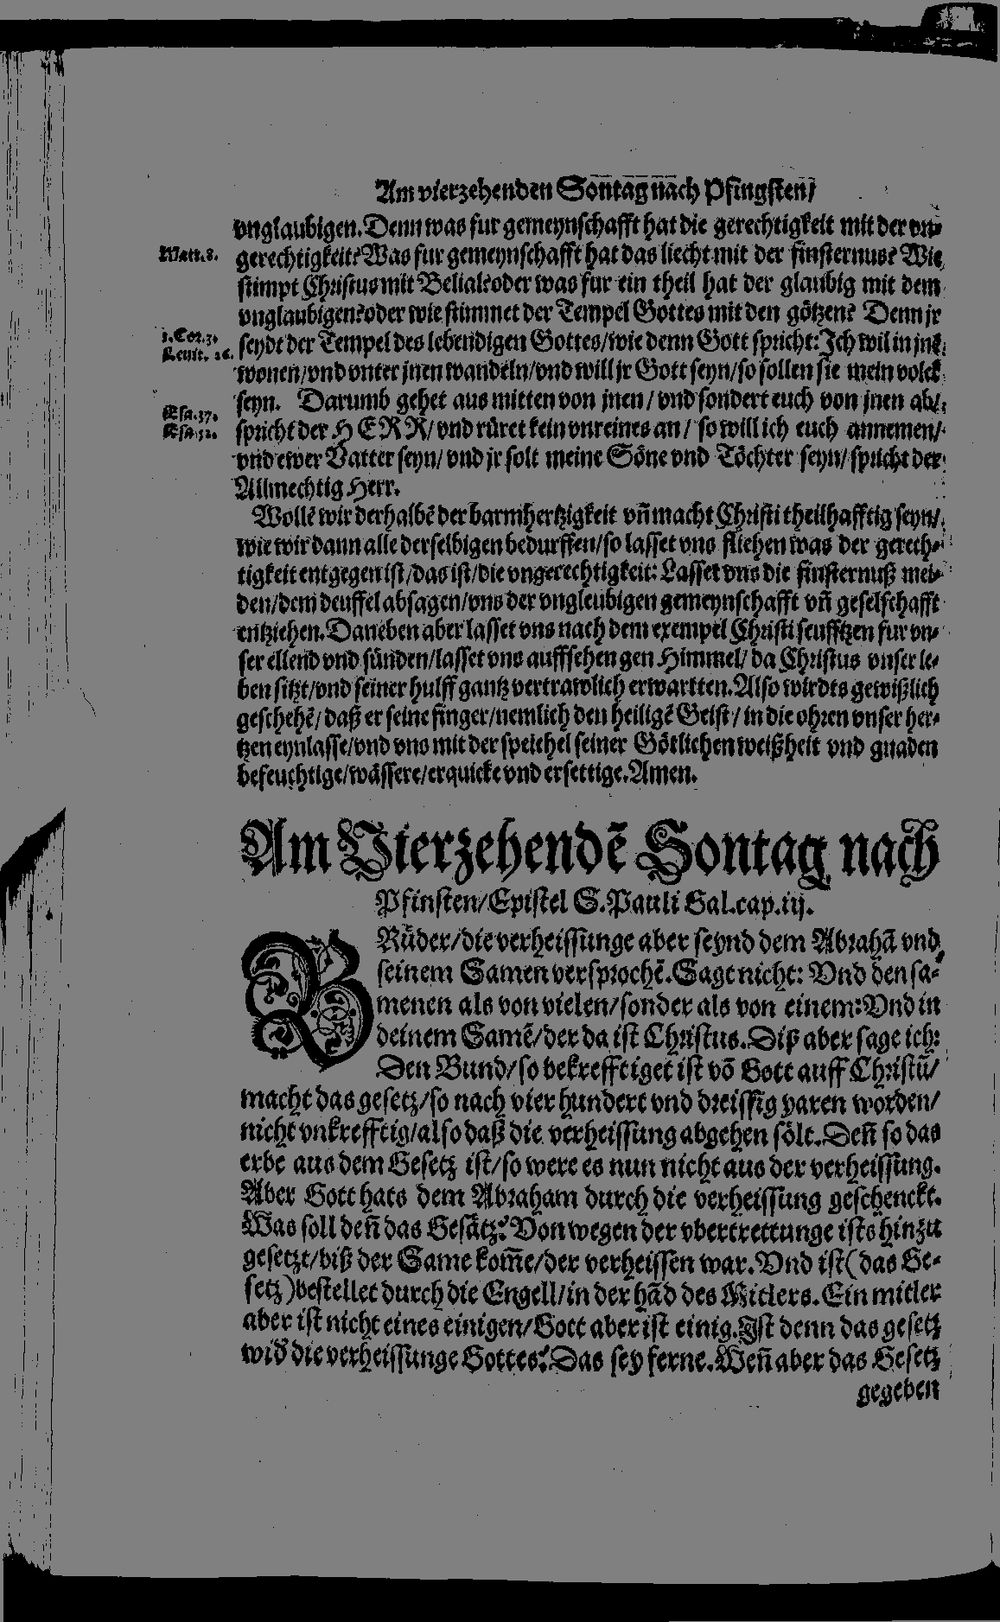 Am vierzehenden Sontag nach Pfingsten/
vnglaubigen. Denn was fur gemeynschafft hat die gerechtigkeit mit der vn-
Matt. 8.
gerechtigkeit? Was fur gemeynschafft hat das liecht mit der finsternus? Wie
stimpt Christus mit Belial? oder was fur ein theil hat der glaubig mit dem
vnglaubigen? oder wie stimmet der Tempel Gottes mit den götzen? Denn jr
1. Cor. 3.
Leuit. 26.
seydt der Tempel des lebendigen Gottes/ wie denn Gott spricht: Ich wil in jnē
wonen/ vnd vnter jnen wandeln/ vnd will jr Gott seyn/ so sollen sie mein volck
Esa. 37.
Esa. 52.
seyn. Darumb gehet aus mitten von jnen/ vnd sondert euch von jnen ab/
spricht der HERR/ vnd rüret kein vnreines an/ so will ich euch annemen/
vnd ewer Vatter seyn/ vnd jr solt meine Söne vnd Töchter seyn/ spricht der
Allmechtig Herr.
Wollē wir derhalbē der barmhertzigkeit vñ macht Christi theilhafftig seyn/
wie wir dann alle derselbigen bedurffen/ so lasset vns fliehen was der gerech-
tigkeit entgegen ist/ das ist/ die vngerechtigkeit: Lasset vns die finsternuß mei-
den/ dem deuffel absagen/ vns der vngleubigen gemeynschafft vñ geselschafft
entziehen. Daneben aber lasset vns nach dem exempel Christi seufftzen fur vn-
ser ellend vnd sünden/ lasset vns auffsehen gen Himmel/ da Christus vnser le-
ben sitzt/ vnd seiner hulff gantz vertrawlich erwartten. Also wirdts gewißlich
geschehē/ daß er seine finger/ nemlich den heiligē Geist/ in die ohren vnser her-
tzen eynlasse/ vnd vns mit der speichel seiner Götlichen weißheit vnd gnaden
befeuchtige/ wässere/ erquicke vnd ersettige. Amen.
Am Vierzehendē Sontag nach
Pfinsten/ Epistel S. Pauli Gal. cap. iij.
BRüder/ die verheissunge aber seynd dem Abrahā vnd
seinem Samen versprochē. Sagt nicht: Vnd den sa-
menen als von vielen/ sonder als von einem: Vnd in
deinem Samē/ der da ist Christus. Diß aber sage ich:
Den Bund/ so bekrefftiget ist vō Gott auff Christū/
macht das gesetz/ so nach vier hundert vnd dreissig yaren worden/
nicht vnkrefftig/ also daß die verheissung abgehen sölt. Deñ so das
erbe aus dem Gesetz ist/ so were es nun nicht aus der verheissung.
Aber Gott hats dem Abraham durch die verheissung geschenckt.
Was soll deñ das Gesätz? Von wegen der vbertrettunge ists hinzu
gesetzt/ biß der Same kom̃e/ der verheissen war. Vnd ist (das Ge-
setz) bestellet durch die Engell/ in der hād des Mitlers. Ein mitler
aber ist nicht eines einigen/ Gott aber ist einig. Ist denn das gesetz
wid' die verheissunge Gottes? Das sey ferne. Weñ aber das Gesetz
gegeben